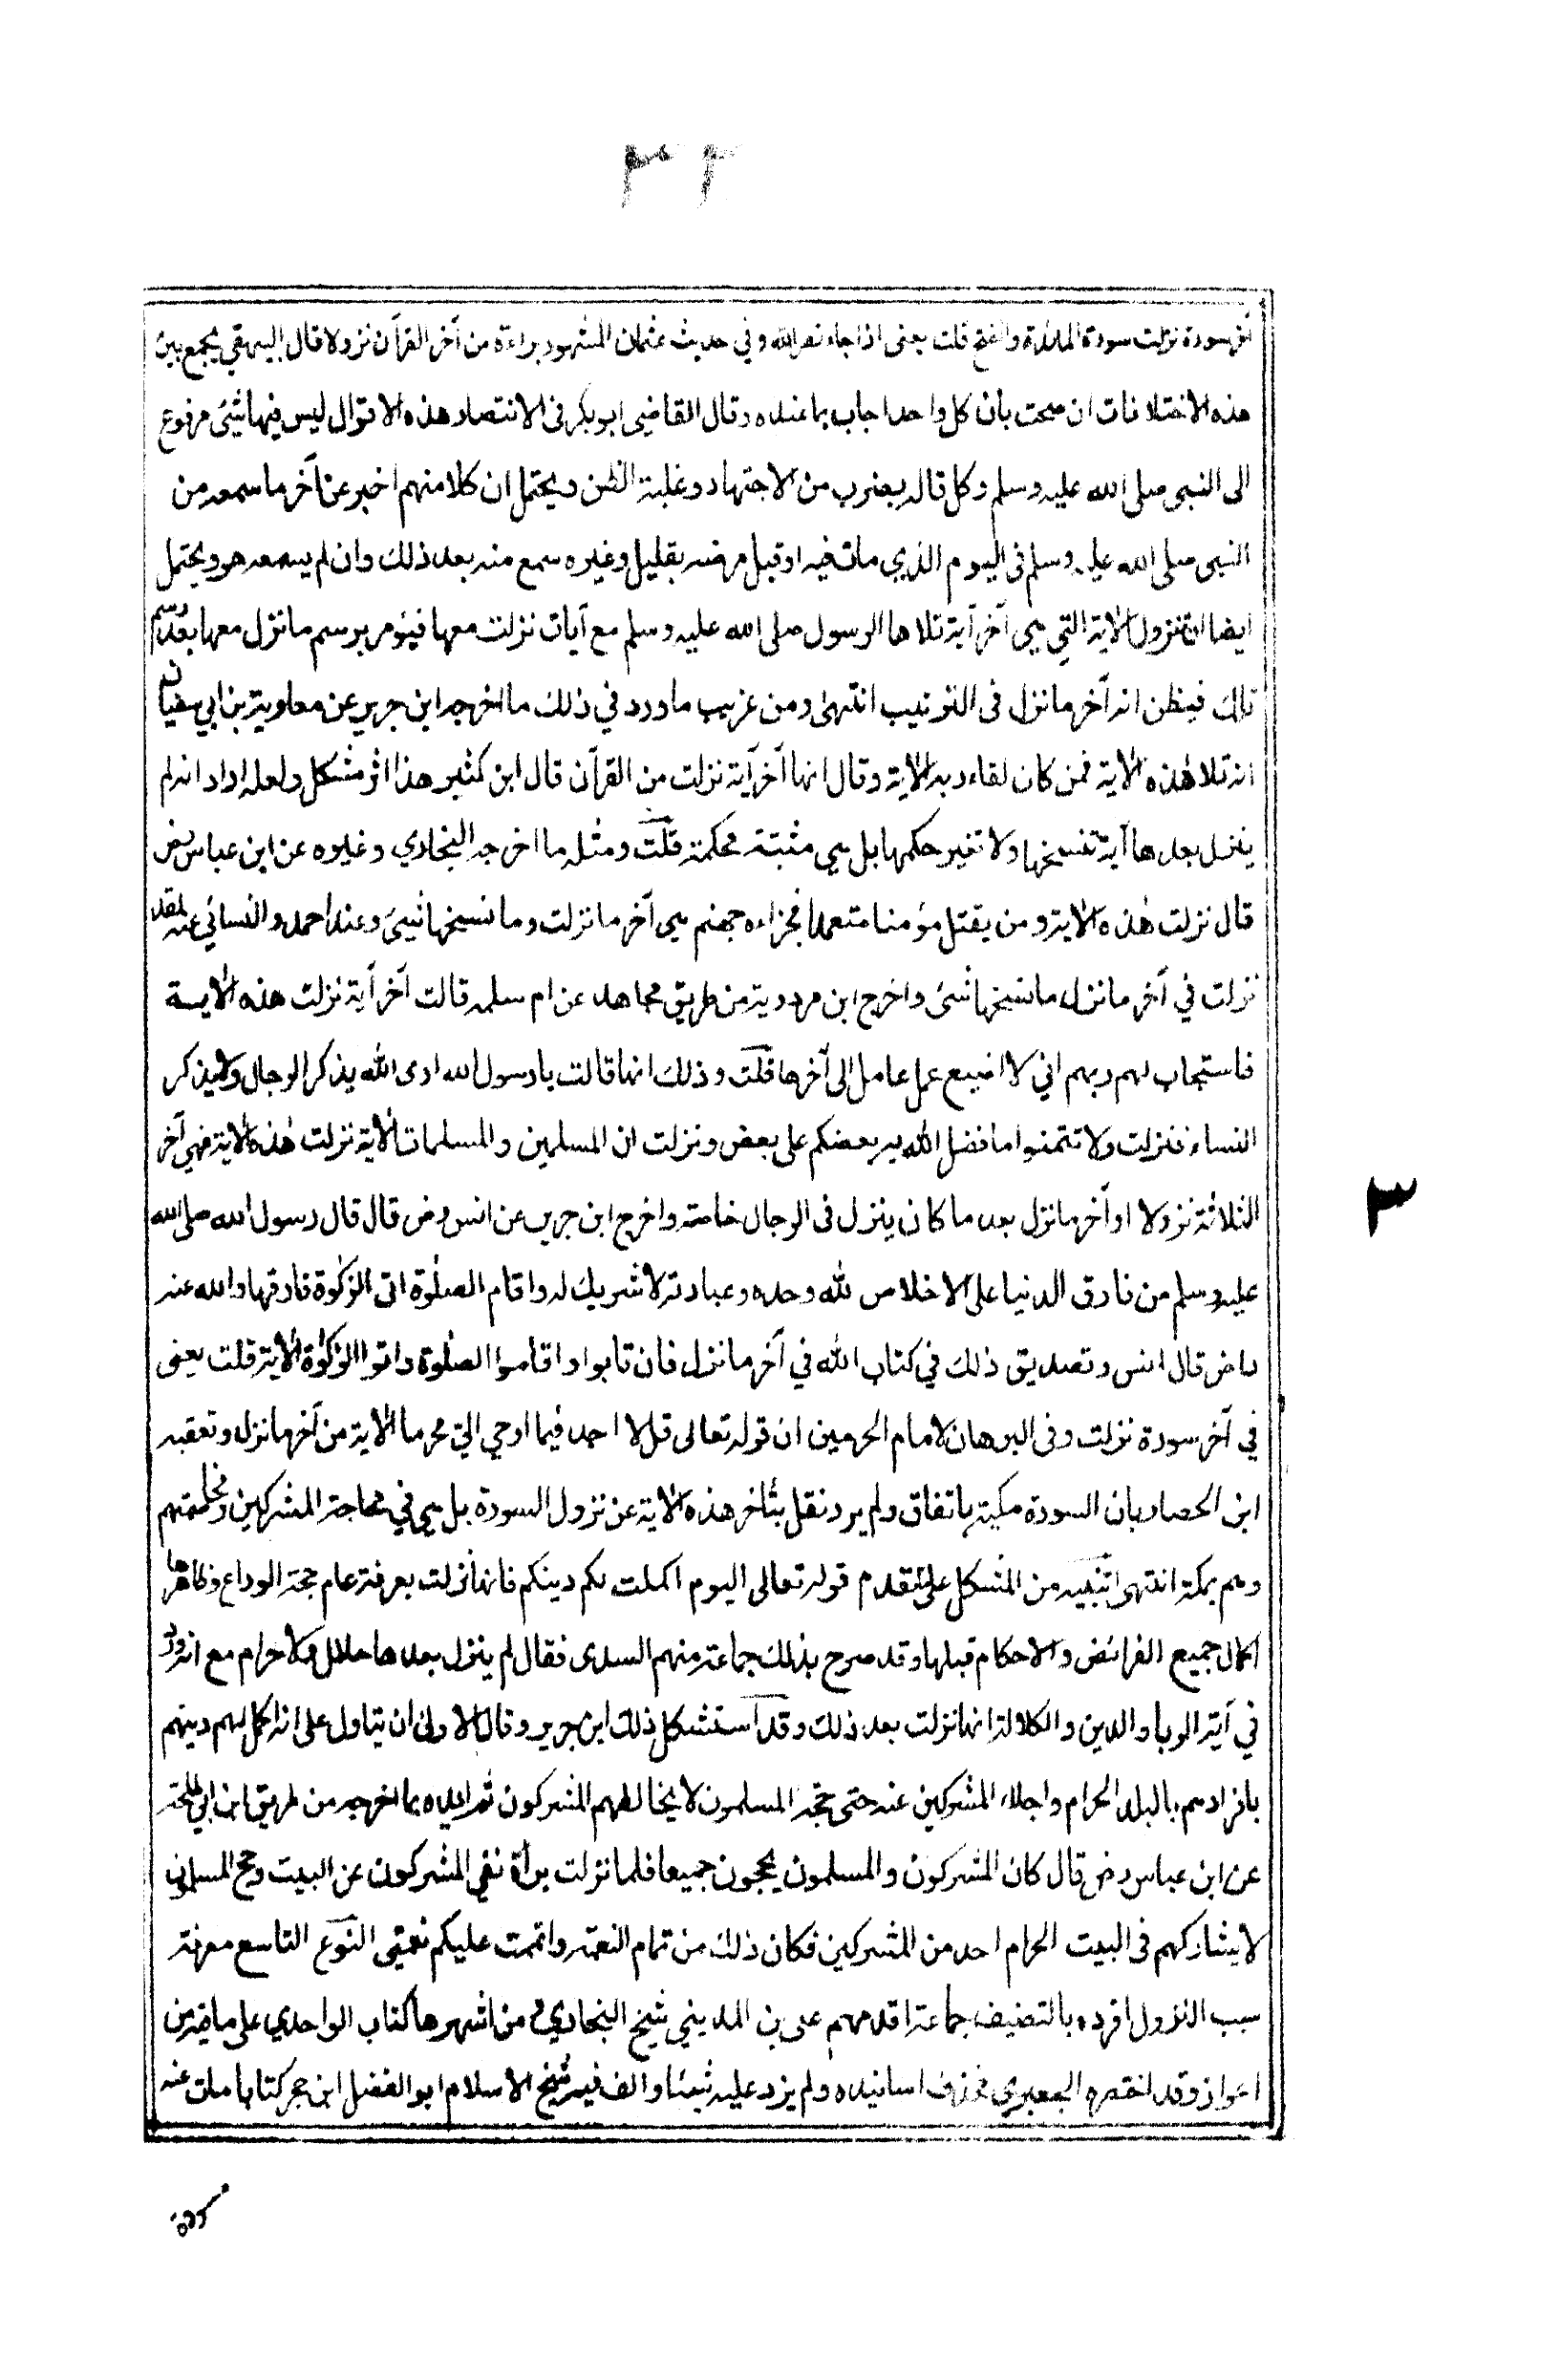 ٣٢
آخر سورة نزلت سورة المائدة والفتح قلت يعنى اذا جاء نصر الله وفي حديث عثمان المشهور براءة من آخر القرآن نزولا قال البيهقي يجمع بين
هذه الاختلافات ان صحت بان كل واحد اجاب بما عنده وقال القاضي ابو بكر فى الانتصار هذه الاقوال ليس فيها شيئ مرفوع
الى النبى صلى الله عليه وسلم وكل قاله بضرب من الاجتهاد وغلبة الظن ويحتمل ان كلا منهم اخبر عن آخر ما سمعه من
النبى صلى الله عليه وسلم فى اليوم الذي مات فيه او قبل مرضه بقليل وغيره سمع منه بعد ذلك وان لم يسمعه هو ويحتمل
ايضا ان تنزل الآية التي هي آخر آية تلاها الرسول صلى الله عليه وسلم مع آيات نزلت معها فيؤمر برسم ما نزل معها بعد رسم
تلك فيظن انه آخر ما نزل فى الترتيب انتهى ومن غريب ما ورد في ذلك ما اخرجه ابن جرير عن معاوية بن ابي سفيان
انه تلا هذه الآية فمن كان لقاء ربه الآية وقال انها آخر آية نزلت من القرآن قال ابن كثير هذا اثر مشكل ولعله اراد انه لم
ينزل بعدها آية تنسخها ولا تغير حكمها بل هي مثبتة محكمة قلت ومثله ما اخرجه البخاري وغيره عن ابن عباس رض
قال نزلت هذه الآية ومن يقتل مؤمنا متعمدا فجزاءه جهنم هي آخر ما نزلت وما نسخها شيئ وعند احمد والنسائي عنه لقد
نزلت في آخر ما نزل ما نسخها شئ واخرج ابن مردوية من طريق مجاهد عن ام سلمه قالت آخر آية نزلت هذه الاية
فاستجاب لهم ربهم اني لا اضيع عمل عامل الى آخرها قلت وذلك انها قالت يا رسول الله ارى الله يذكر الرجال ولا يذكر
النساء فنزلت ولا تتمنوا ما فضل الله به بعضكم على بعض ونزلت ان المسلمين والمسلمات الآية نزلت هذه الآية فهي آخر
الثلاثة نزولا او آخر ما نزل بعد ما كان ينزل فى الرجال خاصة واخرج ابن جرير عن انس رض قال قال رسول الله صلى الله
عليه وسلم من فارق الدنيا على الاخلاص لله وحده وعبادته لا شريك له واقام الصلوة اتى الزكوة فارقها والله عنه
راض قال انس وتصديق ذلك في كتاب الله في آخر ما نزل فان تابوا واقاموا الصلوة واتوا الزكوة الآية قلت يعنى
في آخر سورة نزلت وفى البرهان لامام الحرمين ان قوله تعالى قل لا اجد فيما اوحي الي محرما الآية من آخر ما نزل وتعقبه
ابن الحصار بان السورة مكية باتفاق ولم يرد نقل بتأخر هذه الآية عن نزول السورة بل هي في محاجة المشركين ومخاصمتهم
وهم بمكة انتهى تنبيه من المشكل على ما تقدم قوله تعالى اليوم اكملت لكم دينكم فانها نزلت بعرفة عام حجة الوداع وظاهرها
اكمال جميع الفرائض والاحكام قبلها وقد صرح بذلك جماعة منهم السدى فقال لم ينزل بعدها حلال ولا حرام مع انه ورد
في آية الربا والدين والكلالة انها نزلت بعد ذلك وقد استشكل ذلك ابن جرير وقال الاولى ان يتاول على انه اكمل لهم دينهم
بافرادهم بالبلد الحرام واجلاء المشركين عنه حتى حجه المسلمون لا يخالطهم المشركون ثم ايده بما اخرجه من طريق ابن ابي طلحة
عن ابن عباس رض قال كان المشركون والمسلمون يحجون جميعا فلما نزلت براة نفي المشركون عن البيت وحج المسلمون
لا يشاركهم فى البيت الحرام احد من المشركين فكان ذلك من تمام النعمة واتممت عليكم نعمتى النوع التاسع معرفة
سبب النزول افرده بالتصنيف جماعة اقدمهم على بن المديني شيخ البخاري ومن اشهرها كتاب الواحدي على ما فيه من
اعواز وقد اختصره الجعبري فحذف اسانيده ولم يزد عليه شيئا والف فيه شيخ الاسلام ابو الفضل ابن حجر كتابا مات عنه
٣